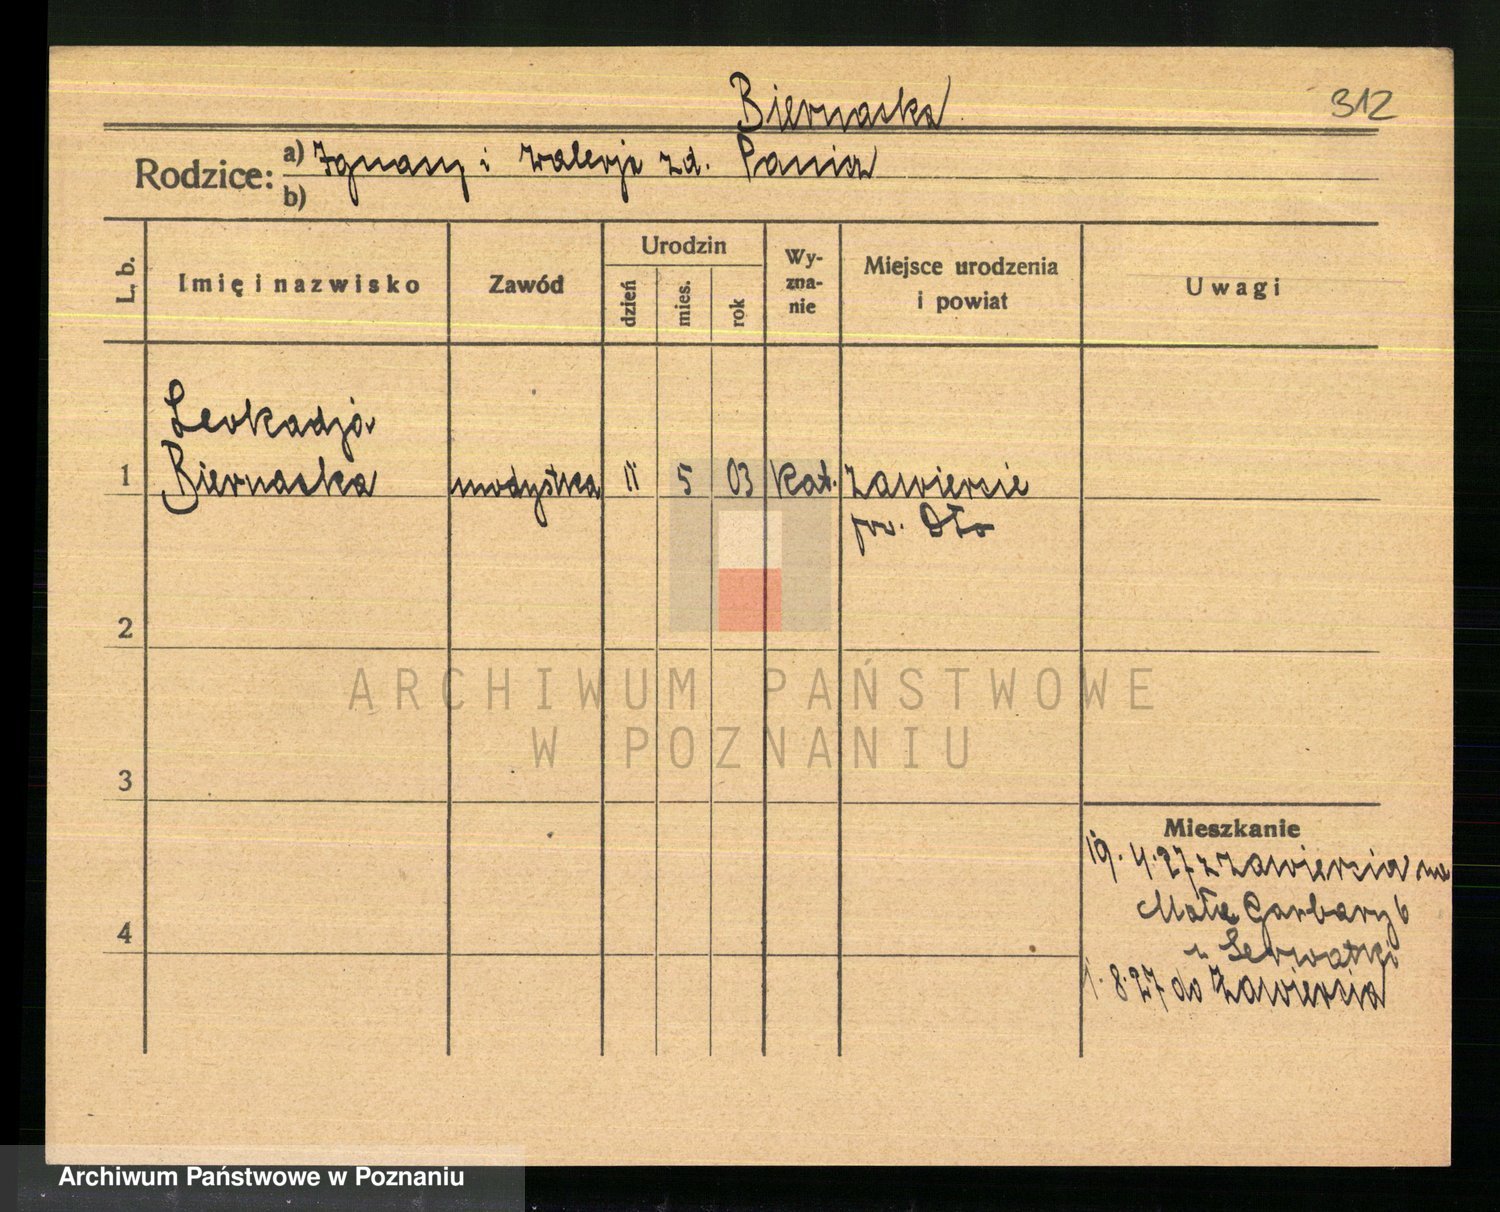 Biernaska
312
Rodzice: a) Ignacy i Walerja zd. Pania
b)
L. b.
Imię i nazwisko
Zawód
Urodzin
dzień
mies.
rok
Wy-
zna-
nie
Miejsce urodzenia
i powiat
Uwagi
Leokadja
1 Biernaska modystka 11 5 03 kat. Zawiercie
pow.
2
ARCHIWUM PAŃSTWOWE
W POZNANIU
3
Mieszkanie
19.4.27 z Zawiercia na
Małe Garbary 6
4
u Serwatki
1.8.27 do Zawiercia
Archiwum Państwowe w Poznaniu